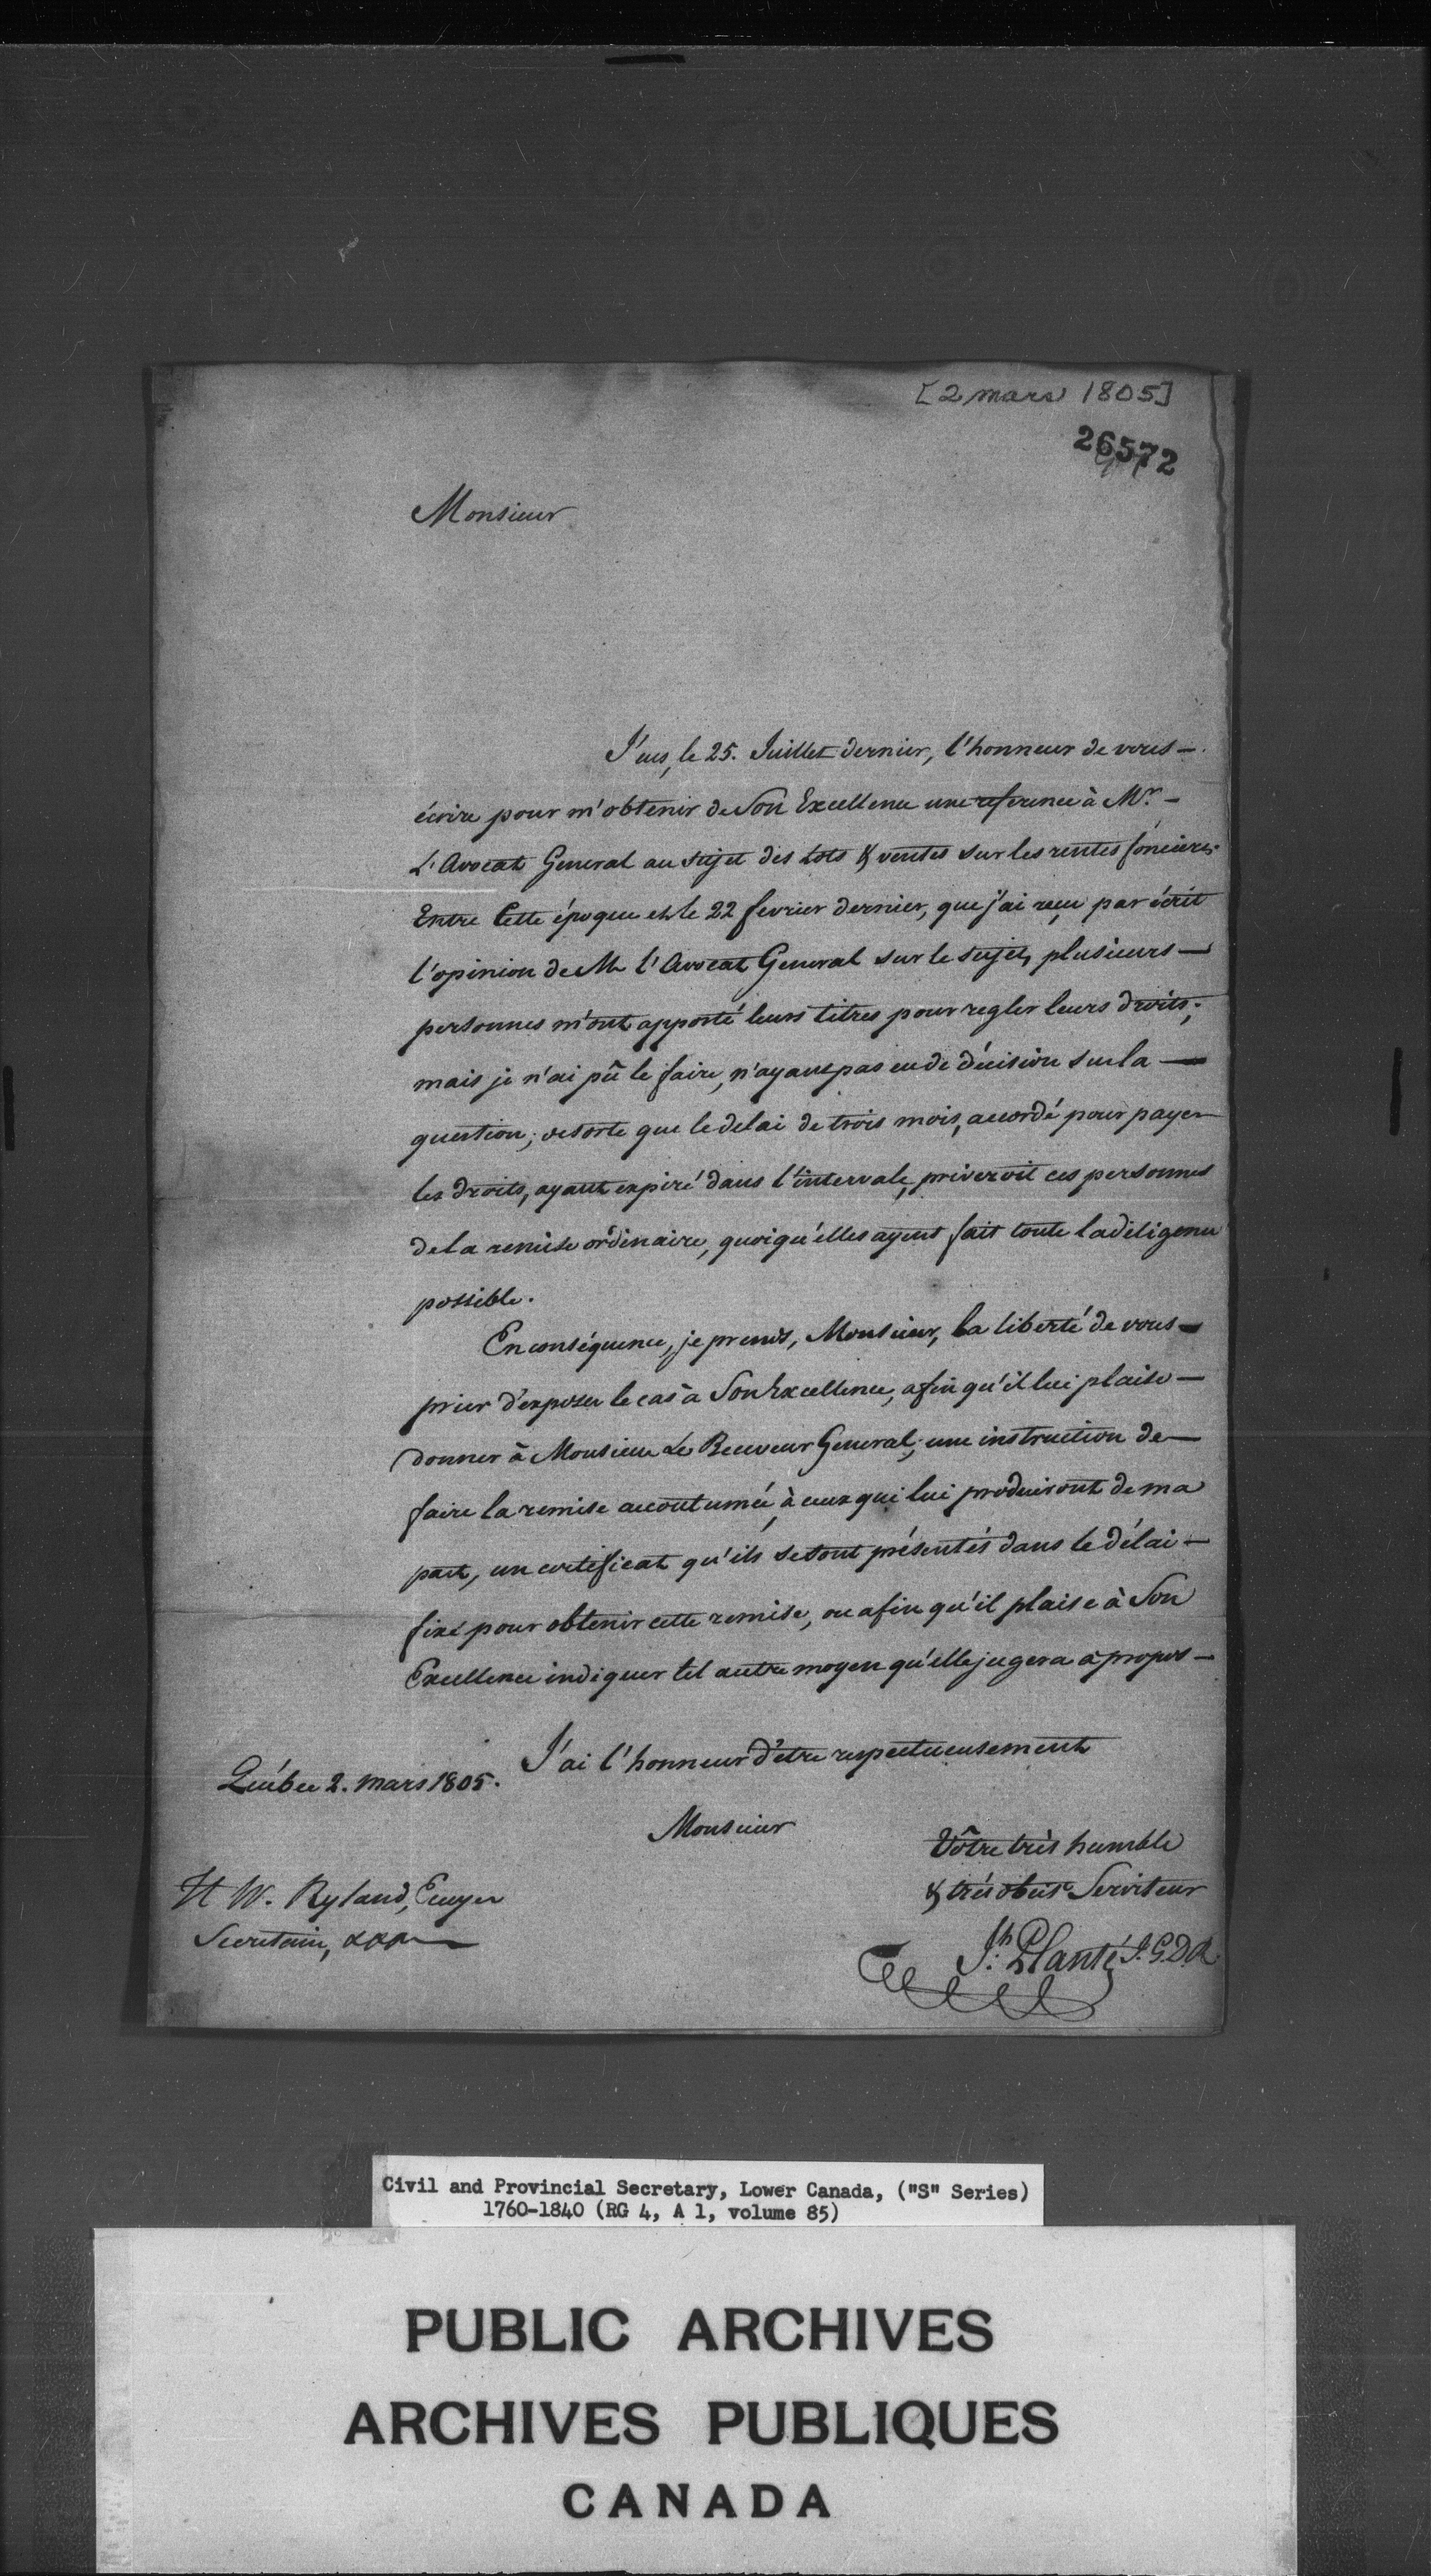 [2 mars 1805]
26572
Monsieur
J'eus, le 25. Juillet dernier, l'honneur de vous —
écrire pour m'obtenir de Son Excellence une reference à Mr. —
L'Avocat General au sujet des Lots & ventes sur les rentes foncieres.
Entre Cette époque et le 22 fevrier dernier, que j'ai reçu par écrit
l'opinion de Mr l'Avocat General sur le sujet, plusieurs —
personnes m'ont apporté leurs titres pour regler leurs droits;
mais je n'ai pû le faire, n'ayant pas eu de décision sur la —
question; desorte que le delai de trois mois, accordé pour payer
les droits, ayant expiré dans l'intervale, priveroit ces personnes
de la remise ordinaire, quoiqu'elles ayent fait toute la diligence
possible.
En conséquence, je prends, Monsieur, la liberté de vous —
prier d'exposer le cas à Son Excellence, afin qu'il lui plaise —
donner à Monsieur Le Receveur General, une instruction de —
faire la remise accoutumée, à ceux qui lui produiront de ma
part, un certificat qu'ils se sont présentés dans le délai —
fixé pour obtenir cette remise, ou afin qu'il plaise à Son
Excellence indiquer tel autre moyen qu'elle jugera à propos —
J'ai l'honneur d'être respectueusement
Québec 2. mars 1805.
Monsieur
Vôtre très humble
& très obéist Serviteur
H W. Ryland, Ecuyer
Secretaire, &&&
Jh: Planté I.G.D.R.
Civil and Provincial Secretary, Lower Canada, ("S" Series)
1760-1840 (RG 4, A 1, volume 85)
PUBLIC ARCHIVES
ARCHIVES PUBLIQUES
CANADA